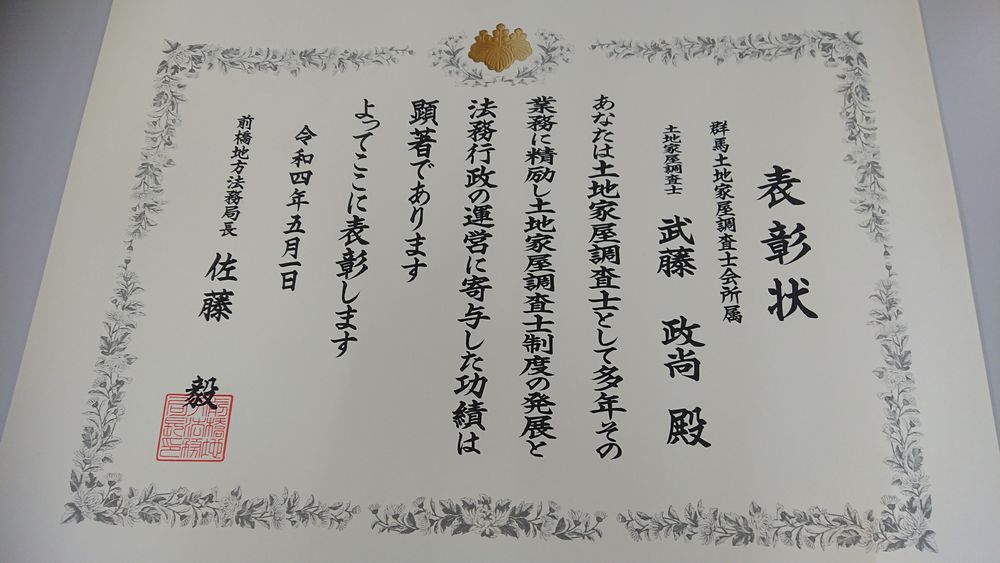 表彰状
群馬土地家屋調査士会所属
土地家屋調査士 武藤 政尚 殿
あなたは土地家屋調査士として多年その
業務に精励し土地家屋調査士制度の発展と
法務行政の運営に寄与した功績は
顕著であります
よってここに表彰します
令和四年五月一日
前橋地方法務局長 佐藤 毅